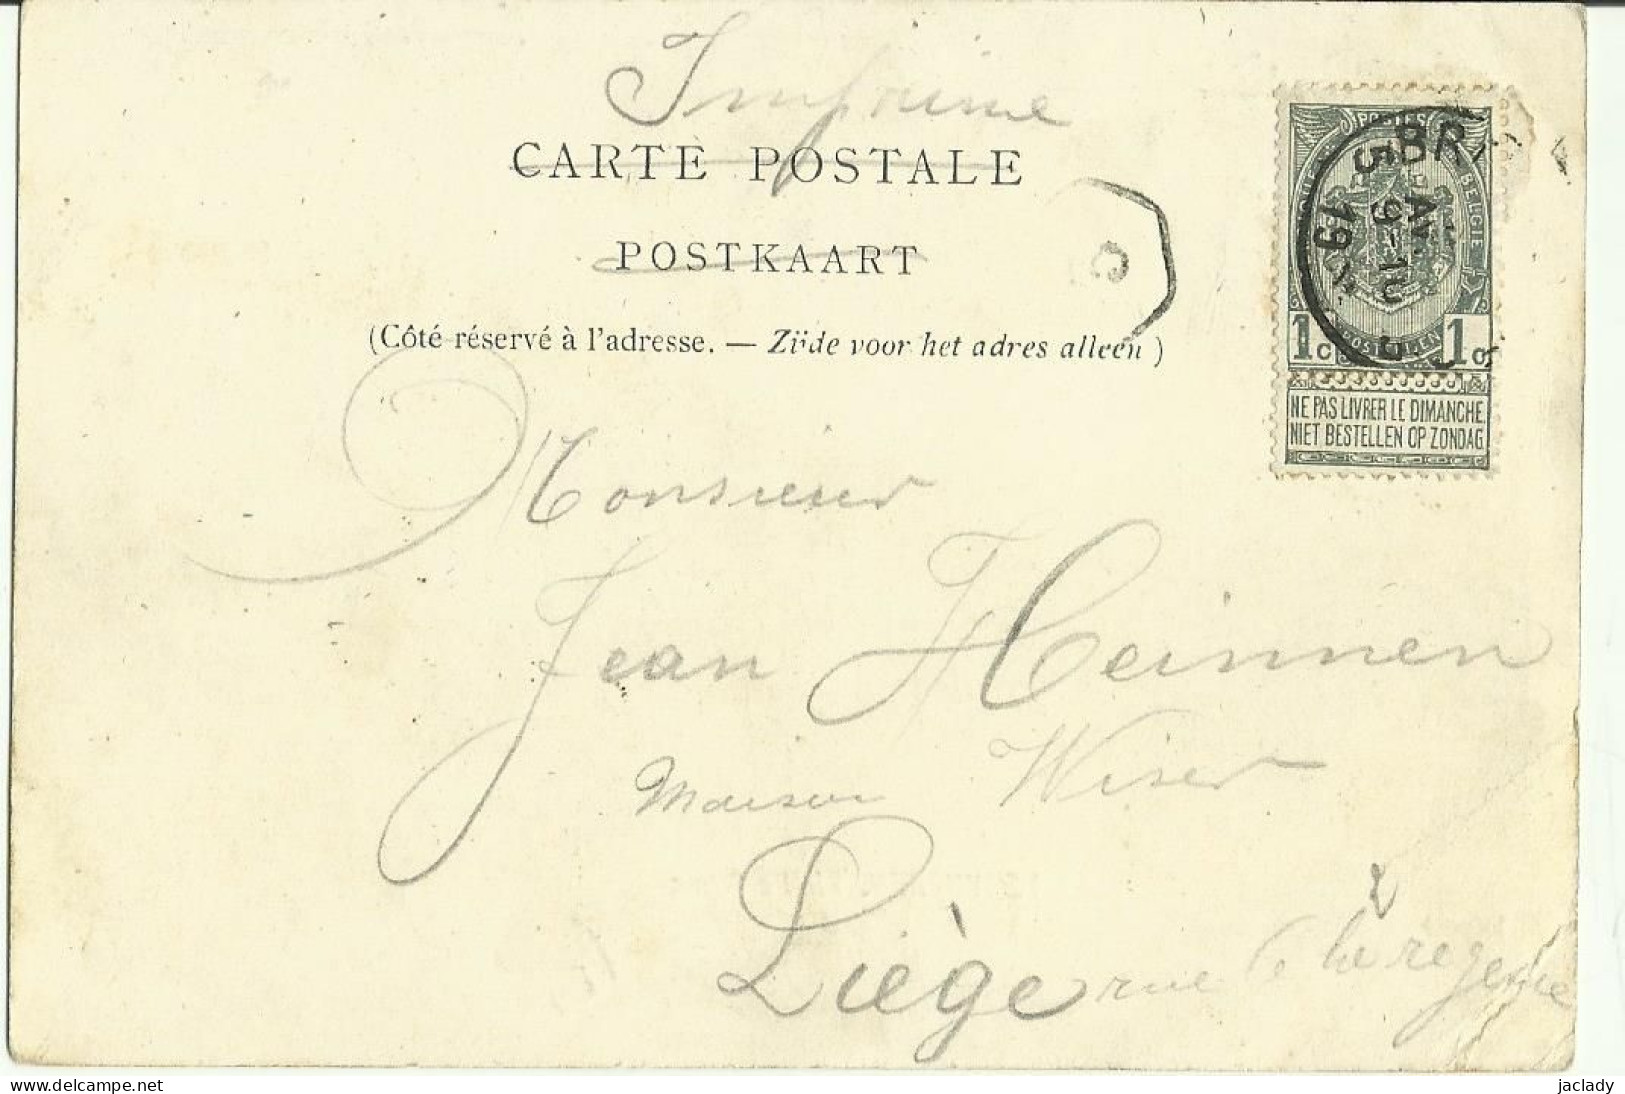 Imprimé
CARTE POSTALE
POSTKAART
(Côté réservé à l'adresse. — Zijde voor het adres alleen)
C
POSTES
BELGIE
BR
5 AV
9-10
19
1c 1c
NE PAS LIVRER LE DIMANCHE
NIET BESTELLEN OP ZONDAG
Monsieur
Jean Heinnen
Maison Wiser
Liège rue de la regence
jaclady